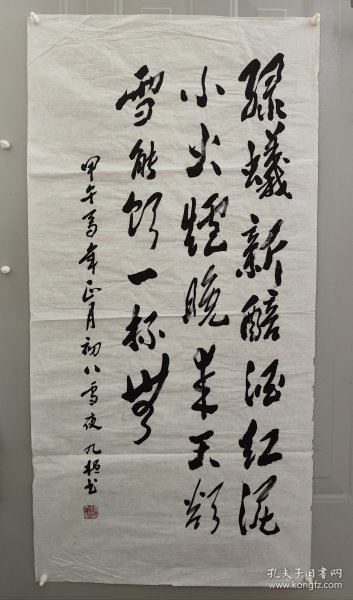 緑蟻新醅酒红泥
小火爐晚来天欲
雪能饮一杯無
甲午馬年正月初八雪夜 九书
孔夫子旧书网
www.kongfz.com